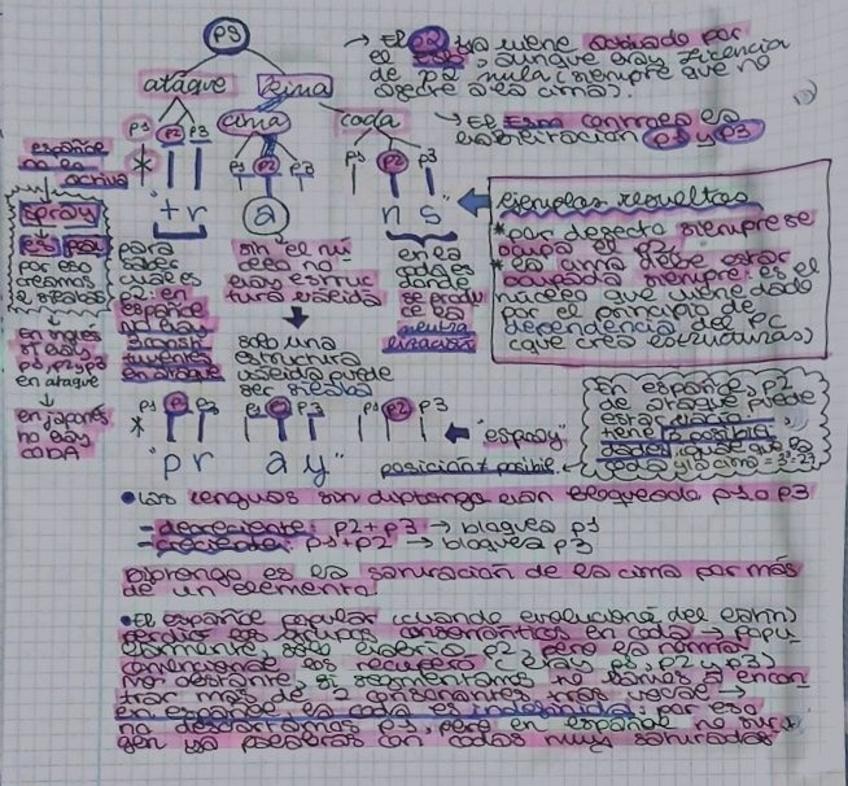 PS
ataque
rima
cima
coda
→ El P2 ya viene activado por
el , aunque hay licencia
de P2 nula (siempre que no
afecte a la cima).
→ El controla la
habilitación P1 y P3
P1 P2 P3
P1 P2 P3
P1 P2 P3
*
"tr
a
n s"
español
no la
activa
spray
es pai
por eso
creamos
2 sílabas
↓
En inglés
sí hay
p1, p2 y p3
en ataque
↓
en japonés
no hay
CODA
para
saber
cuál es
p2: en
español
no hay
en ataque
sin el nú
cleo no
hay estruc
tura válida
solo una
estructura
válida puede
ser sílaba
en la
coda es
donde
se produ
ce la
neutra
lización
ejemplos resueltos
* por defecto siempre se
ocupa el P2
* la cima debe estar
ocupada siempre: es el
núcleo que viene dado
por el principio de
dependencia del PC
(que crea estructuras)
P1 P2 P3
P1 P2 P3
P1 P2 P3
*
"pr ay"
← "espray"
posición ≠ posible
En español, P2
de ataque puede
estar vacía,
tiene 3 posibili
dades, igual que la
coda y la cima = 3³=27
• Las lenguas sin diptongo han bloqueado P1 o P3
- decreciente: P2+P3 → bloquea P1
- creciente: P1+P2 → bloquea P3
Diptongo es la saturación de la cima por más
de un elemento.
• El español popular (cuando evolucionó del latín)
perdió los grupos consonánticos en coda → popu
larmente, solo habría P2, pero la norma
convencional los recuperó (hay P1, P2 y P3)
no obstante, si segmentamos no vamos a encon
trar más de 2 consonantes tras vocal →
en español, la coda es indefinida; por eso
no descartamos P3, pero en español no sur
gen ya palabras con codas muy saturadas